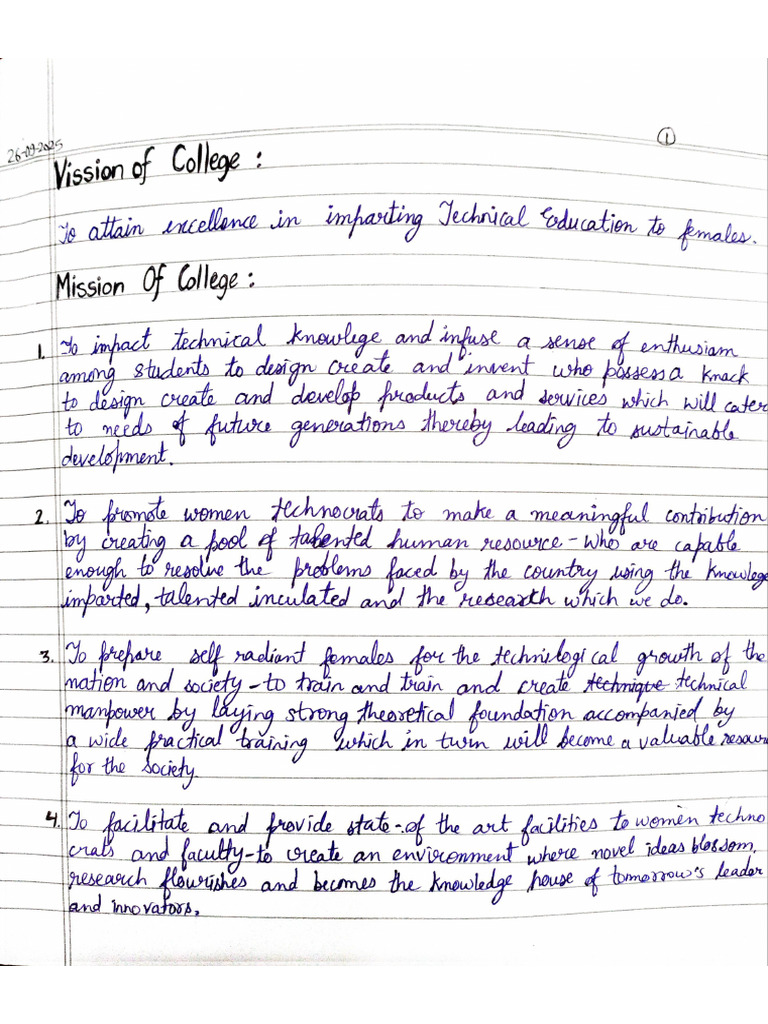 ①
26-09-2025
Vission of College :
To attain excellence in imparting Technical Education to females.
Mission Of College :
1. To impact technical knowlege and infuse a sense of enthusiam
among students to design create and invent who possess a knack
to design create and develop products and services which will cater
to needs of future generations thereby leading to sustainable
development.
2. To promote women technocrats to make a meaningful contribution
by creating a pool of talented human resource - who are capable
enough to resolve the problems faced by the country using the knowlege
imparted, talented inculated and the research which we do.
3. To prepare self radiant females for the technological growth of the
nation and society - to train and train and create technique technical
manpower by laying strong theoretical foundation accompanied by
a wide practical training which in turn will become a valuable resour
for the society.
4. To facilitate and provide state-of the art facilities to women techno
crats and faculty - to create an environment where novel ideas blossom,
research flourishes and becomes the knowledge house of tomorrow's leader
and innovators,